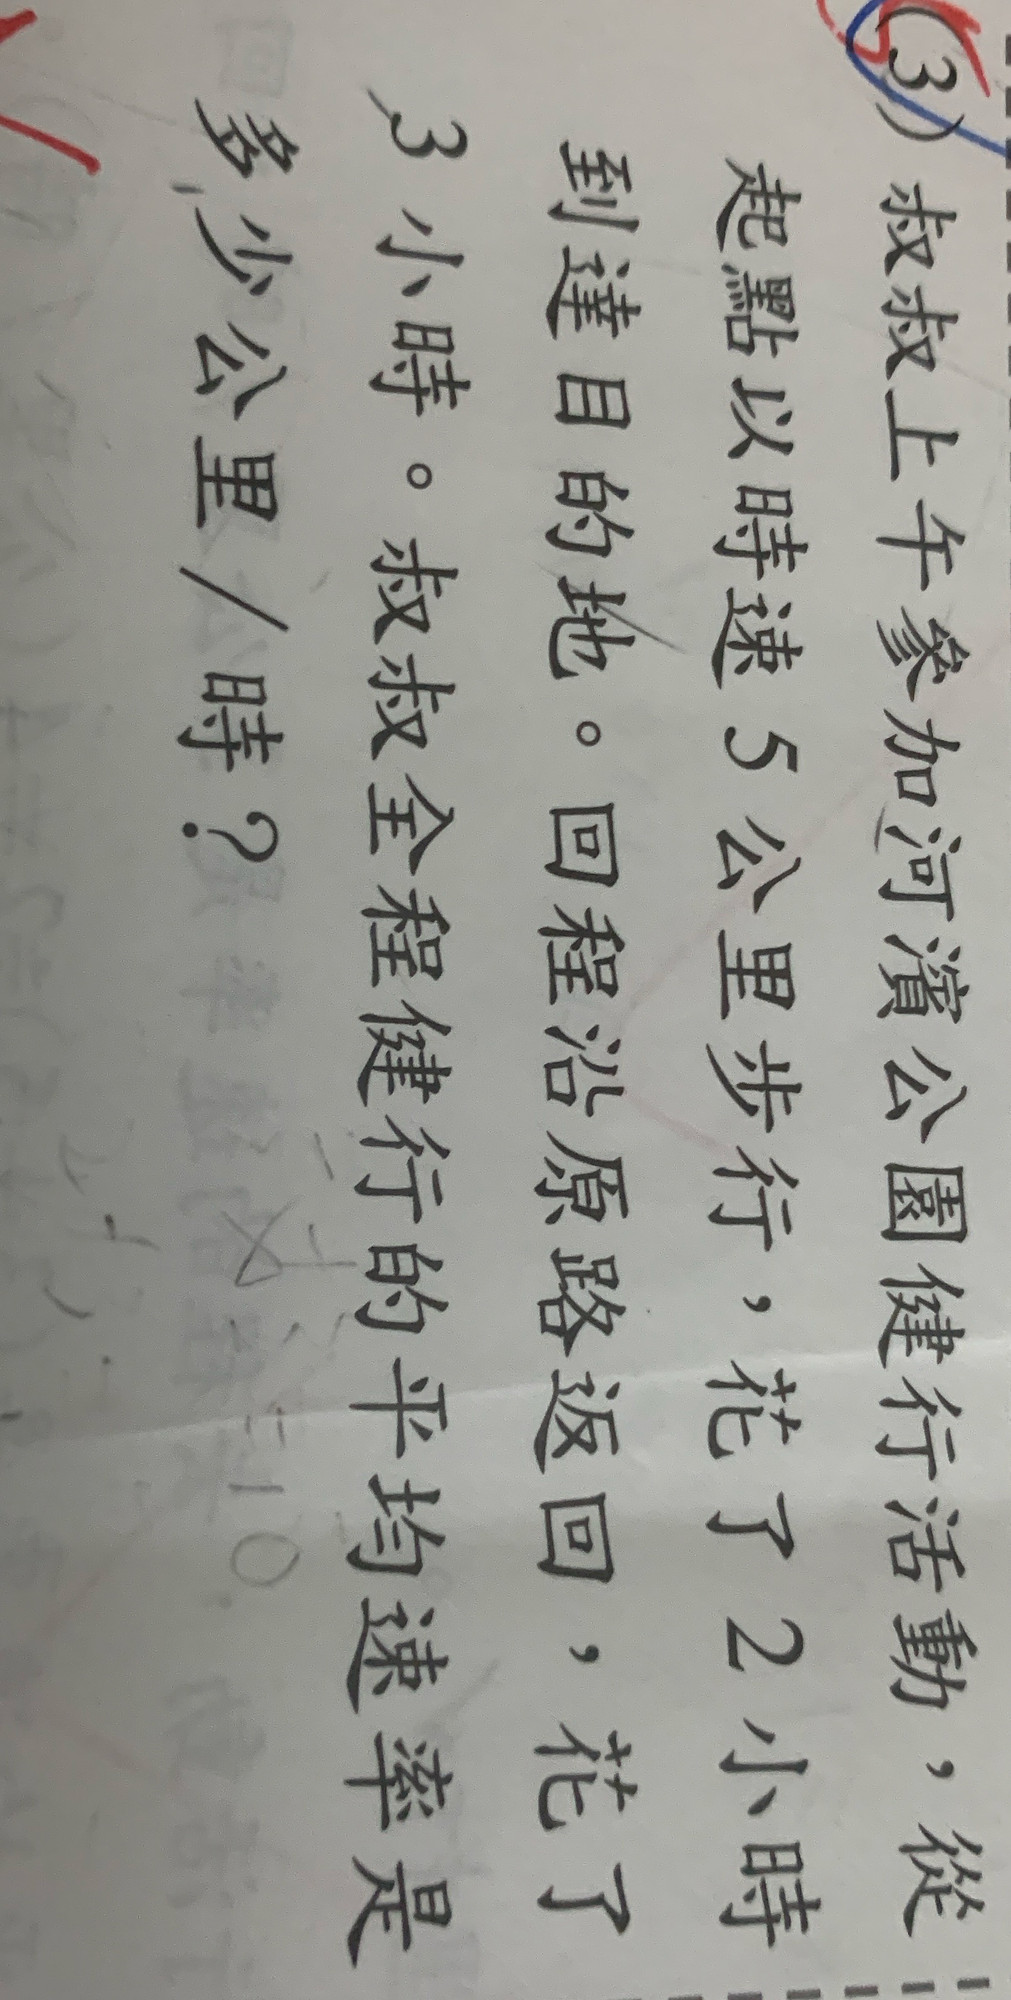 (3) 叔叔上午參加河濱公園健行活動，從
起點以時速5公里步行，花了2小時
到達目的地。回程沿原路返回，花了
3小時。叔叔全程健行的平均速率是
多少公里/時？